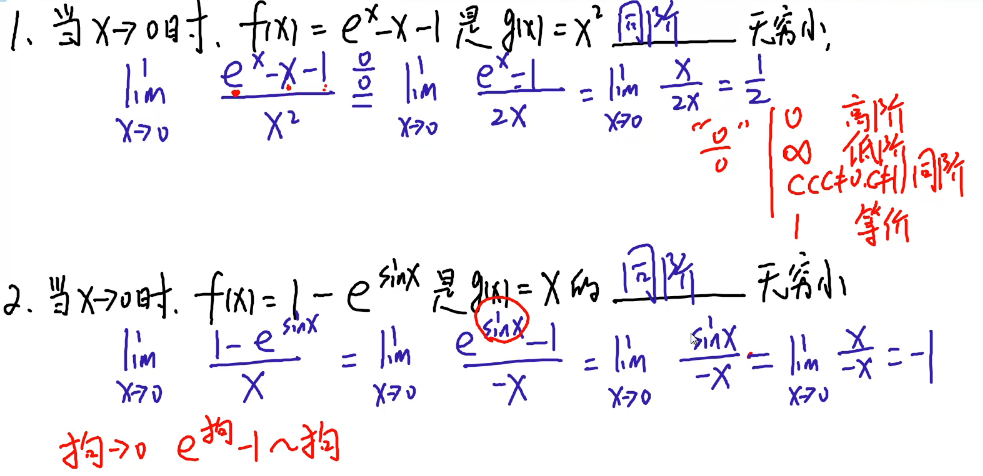 1、当x→0时, f(x)=e^x-x-1是g(x)=x² 同阶 无穷小,
lim x→0 (e^x-x-1)/x² =(0/0) lim x→0 (e^x-1)/2x = lim x→0 x/2x = 1/2
"0/0" 0 高阶
∞ 低阶
C(C≠0.C≠1) 同阶
1 等价
2、当x→0时. f(x)=1-e^sinx 是g(x)=x的 同阶 无穷小
lim x→0 (1-e^sinx)/x = lim x→0 (e^sinx-1)/-x = lim x→0 sinx/-x = lim x→0 x/-x = -1
狗→0 e^狗-1~狗